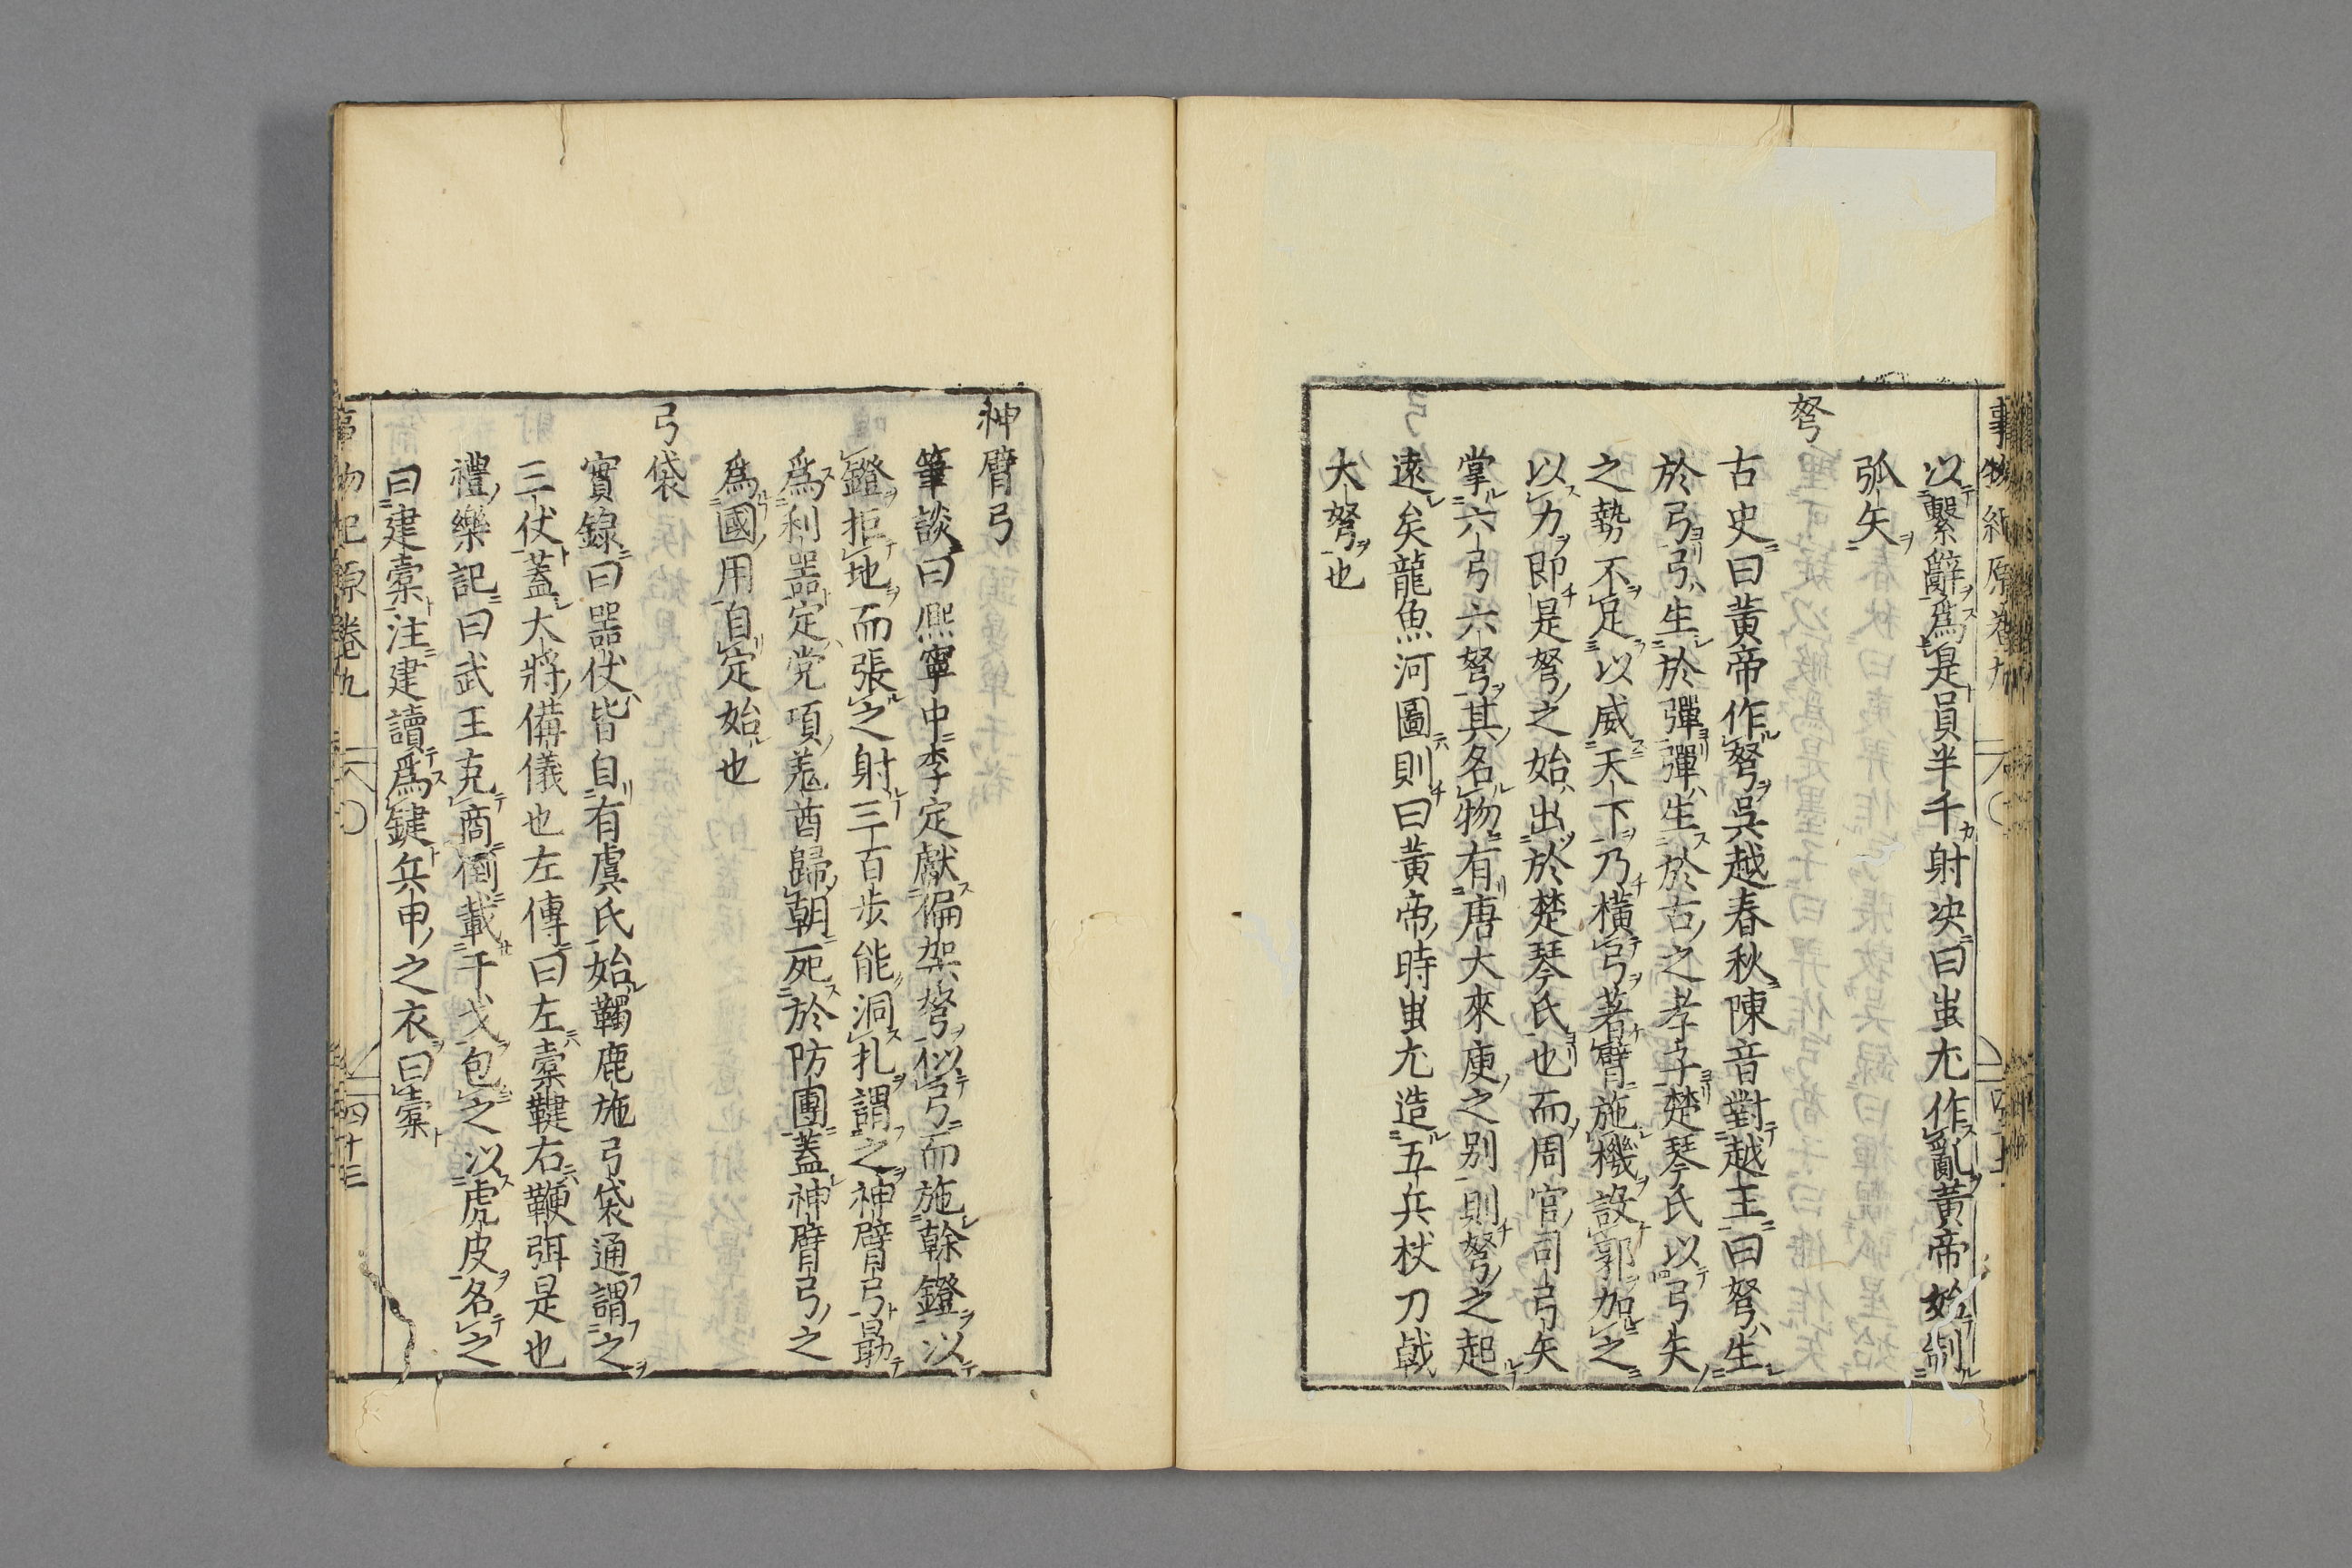 事物紀原卷九
以繫辭爲是員半千射决曰蚩尤作亂黃帝始制
弧矢
弩
古史曰黃帝作弩吳越春秋陳音對越王曰弩生
於弓弓生於彈彈生於古之孝子楚琴氏以弓矢
之勢不足以威天下乃橫弓著臂施機設郭加之
以力即是弩之始出於楚琴氏也而周官司弓矢
掌六弓六弩其名物有唐大來庾之别則弩之起
遠矣龍魚河圖則曰黃帝時蚩尤造五兵杖刀戟
大弩也
神臂弓
筆談曰熈寧中李定獻偏架弩似弓而施榦鐙以
鐙拒地而張之射三百步能洞扎謂之神臂弓最
爲利噐定党項羗酋歸朝死於防團蓋神臂弓之
爲國用自定始也
弓袋
實錄曰噐仗皆自有虞氏始韣鹿施弓袋通謂之
三仗蓋大將備儀也左傳曰左櫜鞬右鞭弭是也
禮樂記曰武王克商倒載干戈包之以虎皮名之
曰建櫜注建讀爲鍵兵甲之衣曰櫜
事物紀原卷九
四十三